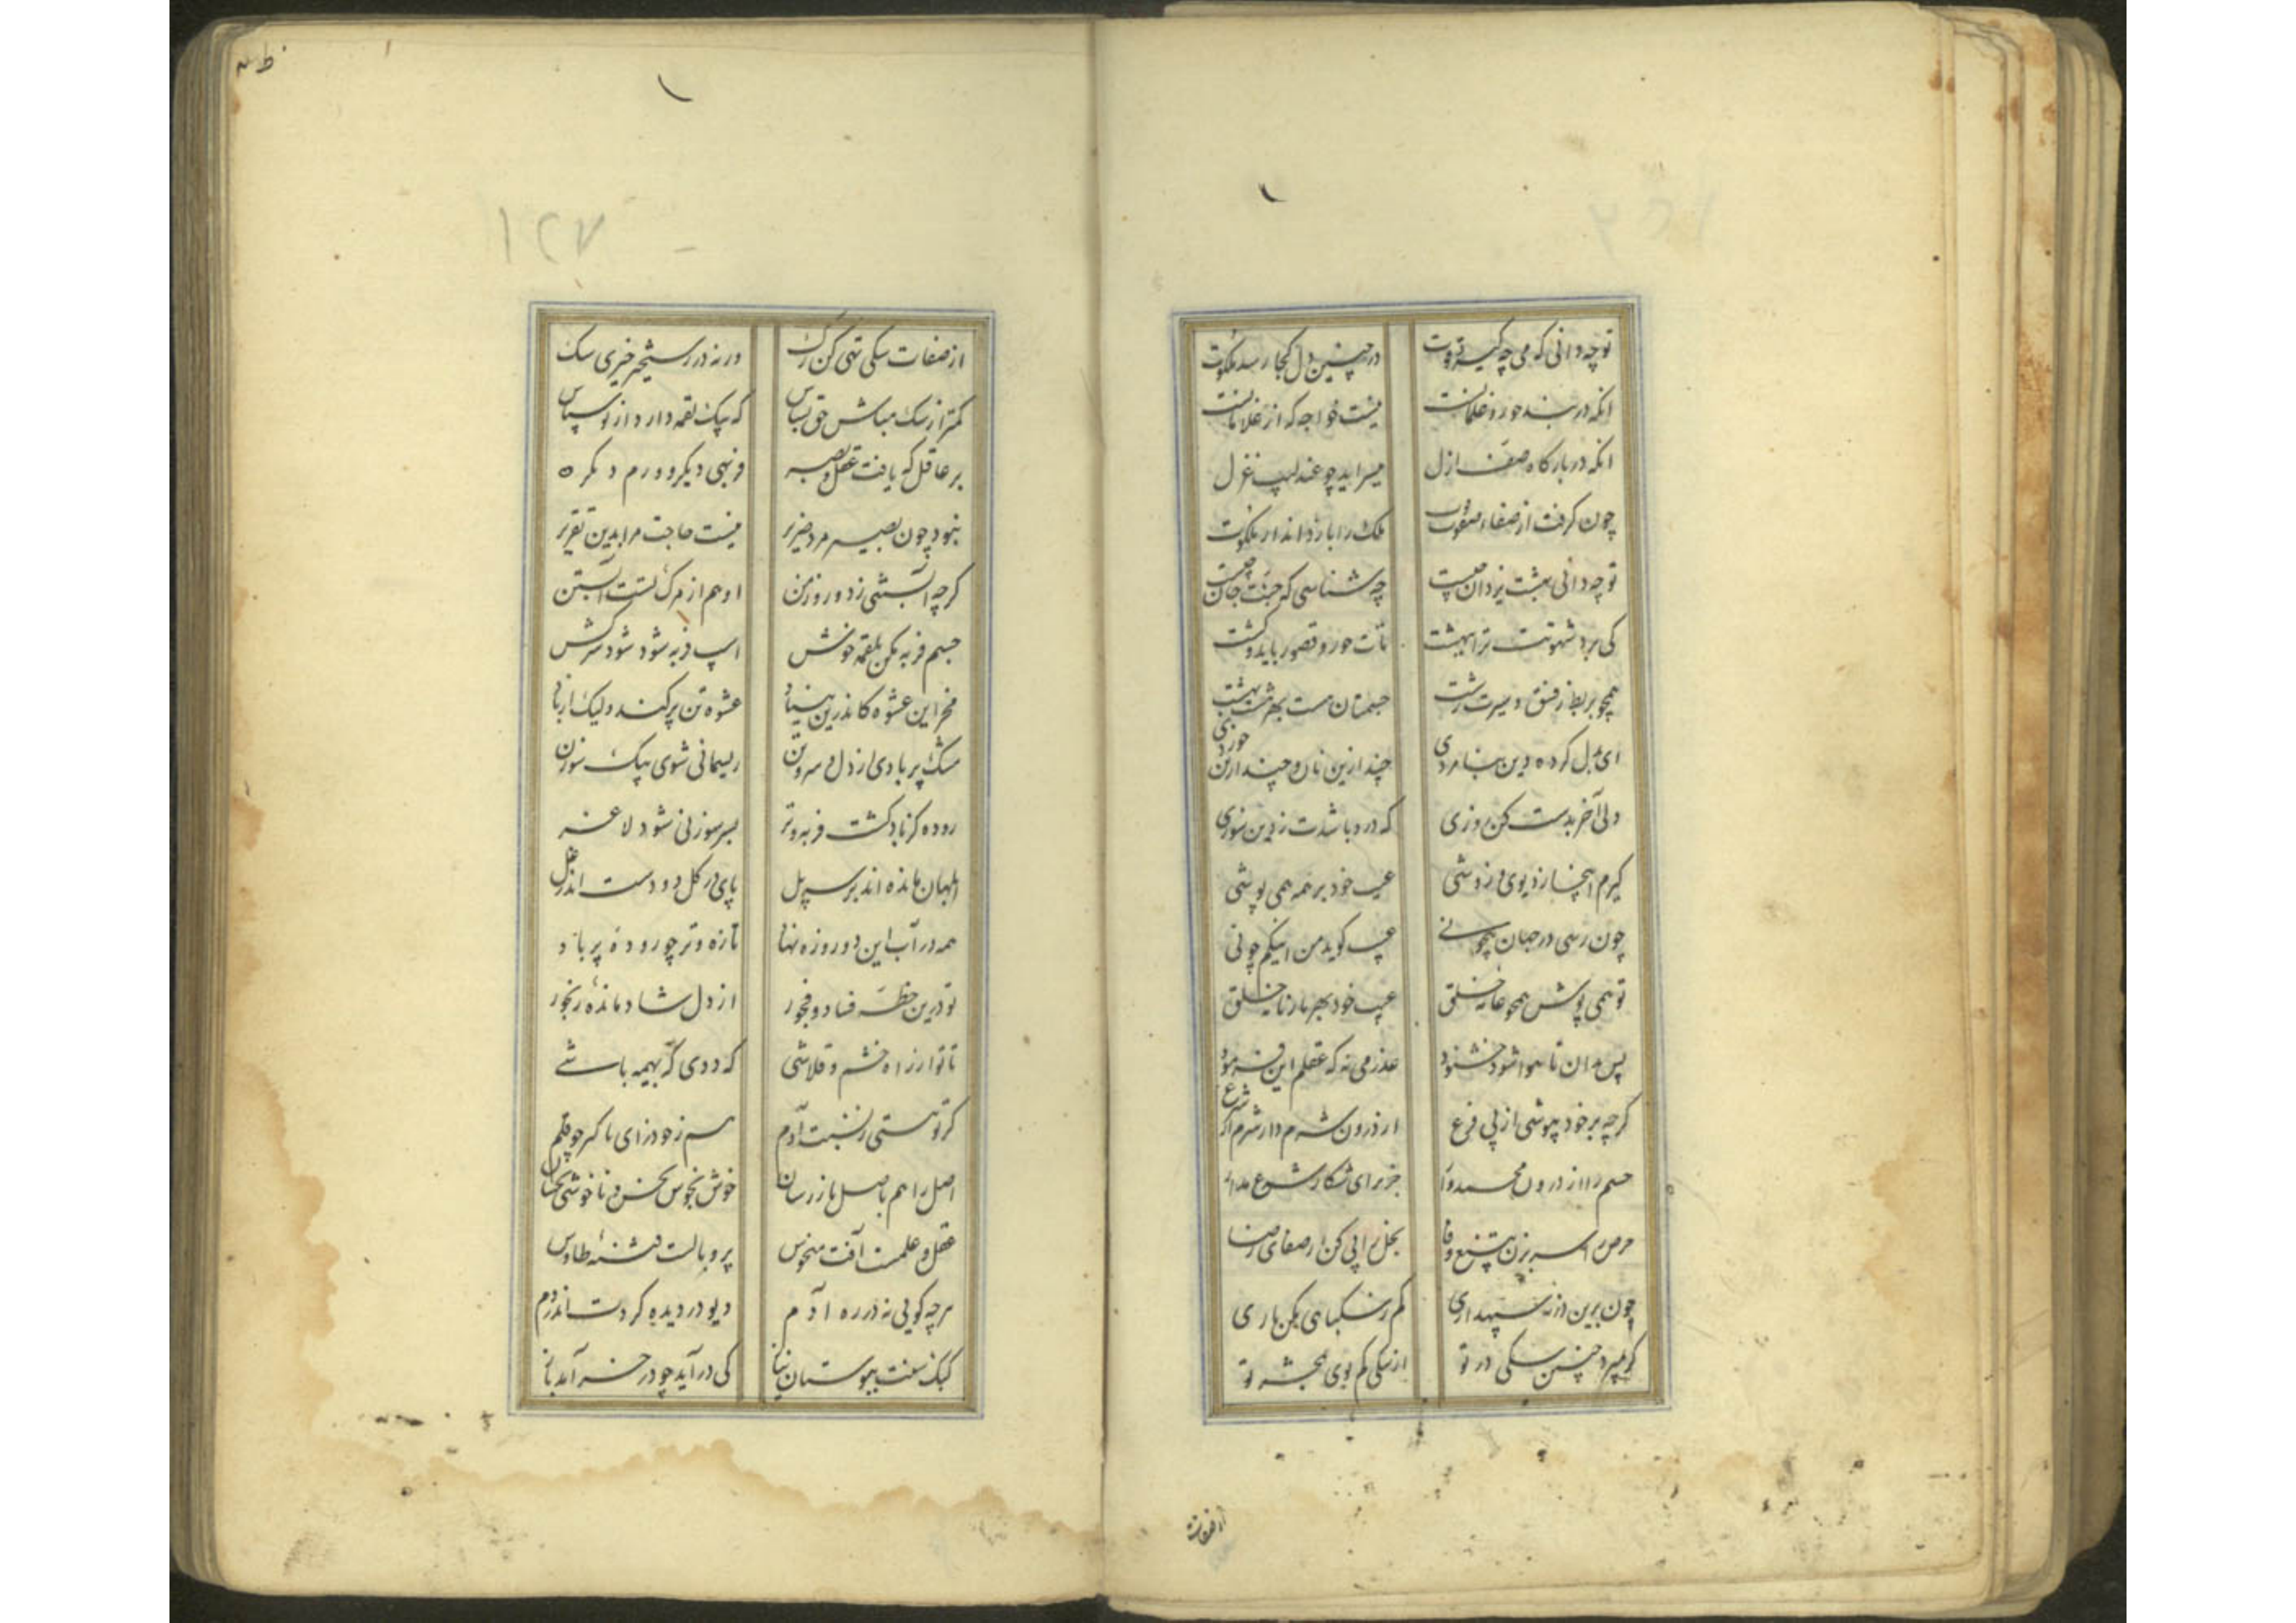 تو چه دانی که می چه گیرد قوت
در چنین دل کجا رسد ملکوت
انکه در بند حور و غلمانست
نیست خواجه که از غلامانست
انکه در بارکاه صف ازل
میسراید چو عندلیب غزل
چون گرفت از صفاء صفوت
ملک را باز داند از ملکوت
تو چه دانی بهشت یزدان چیست
چه شناسی که جنت جان چیست
کی برد شهوتت ترا ببهشت
تات حور و قصور باید و کشت
همچو بربط ز فسق و سیرت زشت
جسمتان مست بهر هشت بهشت
ای بدل کرده دین بنامردی
چند ازین نان و چند ازین خوردی
دلی آخر بدست کن روزی
که درو باشدت ز دین سوزی
گیرم اینجا ز دیوی و زوشی
عیب خود بر همه همی پوشی
چون رسی در جهان بیچونی
عیب گوید من اینکم چونی
تو همی پوش همچو عاریه خلق
عیب خود بهر بارنامه خلق
پس بدان تا هوا شود خشنود
عذر می نه که عقلم این فرمود
گرچه بر خود بپوشی از پی فرع
از درون شرم دار شرم از شرع
خشم را از درون
جز برای شکار شرع مدار
حرص را سر بزن بتیغ وفا
بخل را پی کن از صفای رضا
چون برین در نه سپهداری
کم ز سکبانیی مکن باری
گر بمیرد چنین سکی در تو
از سکی کم بوی بحشر تو
از صفات
۱۲۷
از صفات سکی تهی کن رک
ورنه در رستخیز خیزی سک
کمتر از سک مباش حق بشناس
که بیک لقمه دارد از تو سپاس
بر عاقل که یافت عقل و بصر
فربهی دیکر و ورم دکر
نبود چون بصیر مرد ضریر
نیست حاجت مرا بدین تقریر
گرچه آبستنی زد و روزن
او هم از مرک تست آبستن
جسم فربه مکن بلقمه خوش
اسپ فربه شود شود سرکش
مخر این عشوه کاندرین بنیاد
عشوه تن پر کند ولیک از باد
مشک پر بادی از دل و سر و تن
ریسمانی شوی بیک سوزن
روده کز باد کشت فربه و تر
بسر سوزنی شود لاغر
ابلهان مانده اند بر سر پل
پای در کل دو دست اندر غل
همه در آب این دو روزه نهاد
تازه و تر چو رودهٔ پر باد
تو درین خطهٔ فساد و فجور
از دل شاد ماندهٔ رنجور
تا تو از راه خشم و قلاشی
که ددی که بهیمه باشی
گر تو هستی ز نسبت آدم
سر ز خود زای باک چو قلم
اصل را هم باصل باز رسان
خوش بخوش بخش و ناخوشی بخسان
عقل و علمت آفت منحوس
پر و بالت فتنهٔ طاوس
هرچه گویی نه در ره آدم
دیو در دیده کردت اندر دم
کبک سفت ببوستان نیاز
کی در آید چو در خسر آمد باز